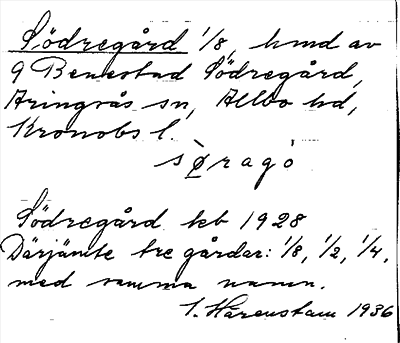 Södregård 1/8, hmd av
9 Benestad Södregård,
Aringsås sn, Allbo hd,
Kronobs l.
sø̀ragó
Södregård kb 1928
Därjämte tre gårdar: 1/8, 1/2, 1/4,
med samma namn.
I. Härenstam 1936